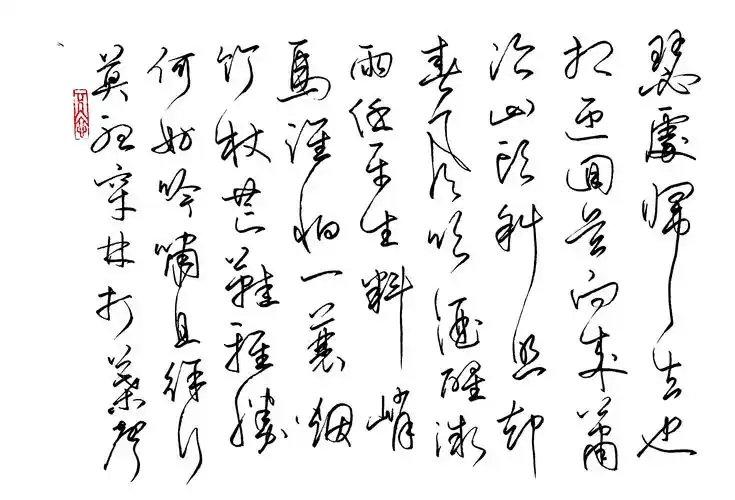 莫聽穿林打葉聲
何妨吟嘯且徐行
竹杖芒鞋輕勝
馬誰怕一蓑烟
雨任平生料峭
春風吹酒醒微
冷山頭斜照却
相迎回首向来蕭
瑟處歸去也